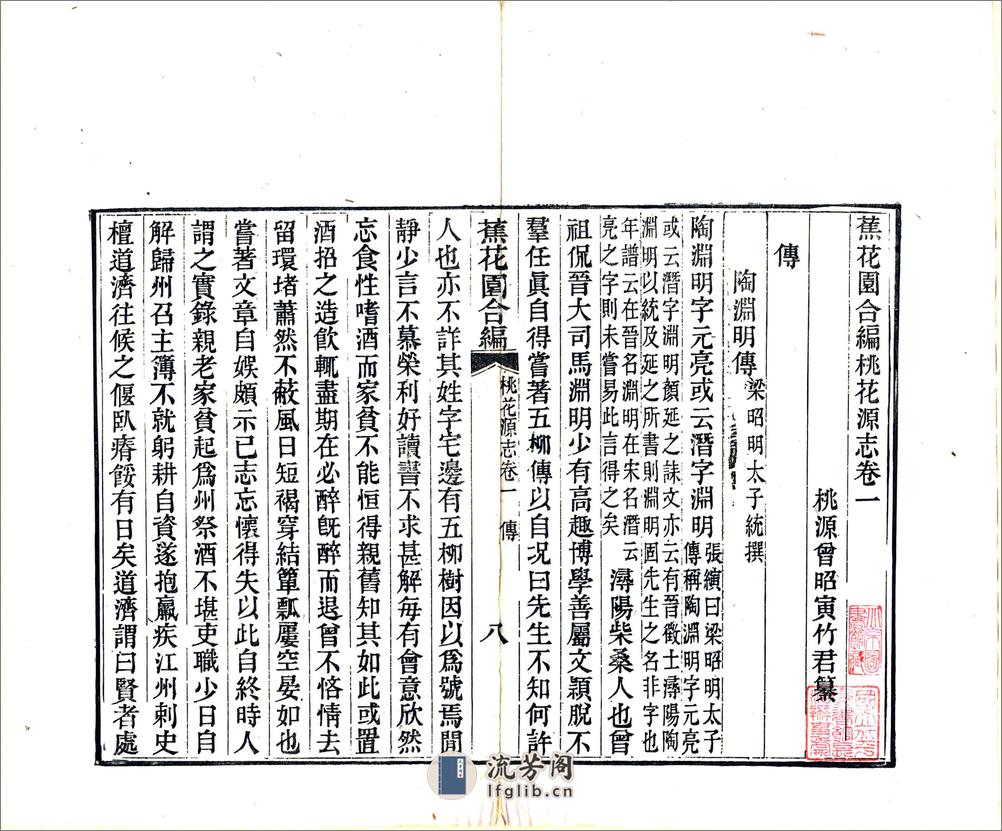 蕉花園合編桃花源志卷一
桃源曾昭寅竹君纂
傳
陶淵明傳 梁昭明太子統撰
陶淵明字元亮或云潛字淵明 張縯曰梁昭明太子
傳稱陶淵明字元亮
或云潛字淵明顏延之誄文亦云有晉徵士潯陽陶
淵明以統及延之所書則淵明固先生之名非字也
年譜云在晉名淵明在宋名潛云
亮之字則未嘗易此言得之矣
潯陽柴桑人也曾
祖侃晉大司馬淵明少有高趣博學善屬文穎脫不
羣任眞自得嘗著五柳傳以自况曰先生不知何許
蕉花園合編 桃花源志卷一 傳 八
人也亦不詳其姓字宅邊有五柳樹因以爲號焉閒
靜少言不慕榮利好讀書不求甚解每有會意欣然
忘食性嗜酒而家貧不能恒得親舊知其如此或置
酒招之造飲輒盡期在必醉旣醉而退曾不悋情去
留環堵蕭然不蔽風日短褐穿結簞瓢屢空晏如也
嘗著文章自娛頗示己志忘懷得失以此自終時人
謂之實錄親老家貧起爲州祭酒不堪吏職少日自
解歸州召主簿不就躬耕自資遂抱羸疾江州刺史
檀道濟往候之偃臥瘠餒有日矣道濟謂曰賢者處
流芳阁
lfglib.cn